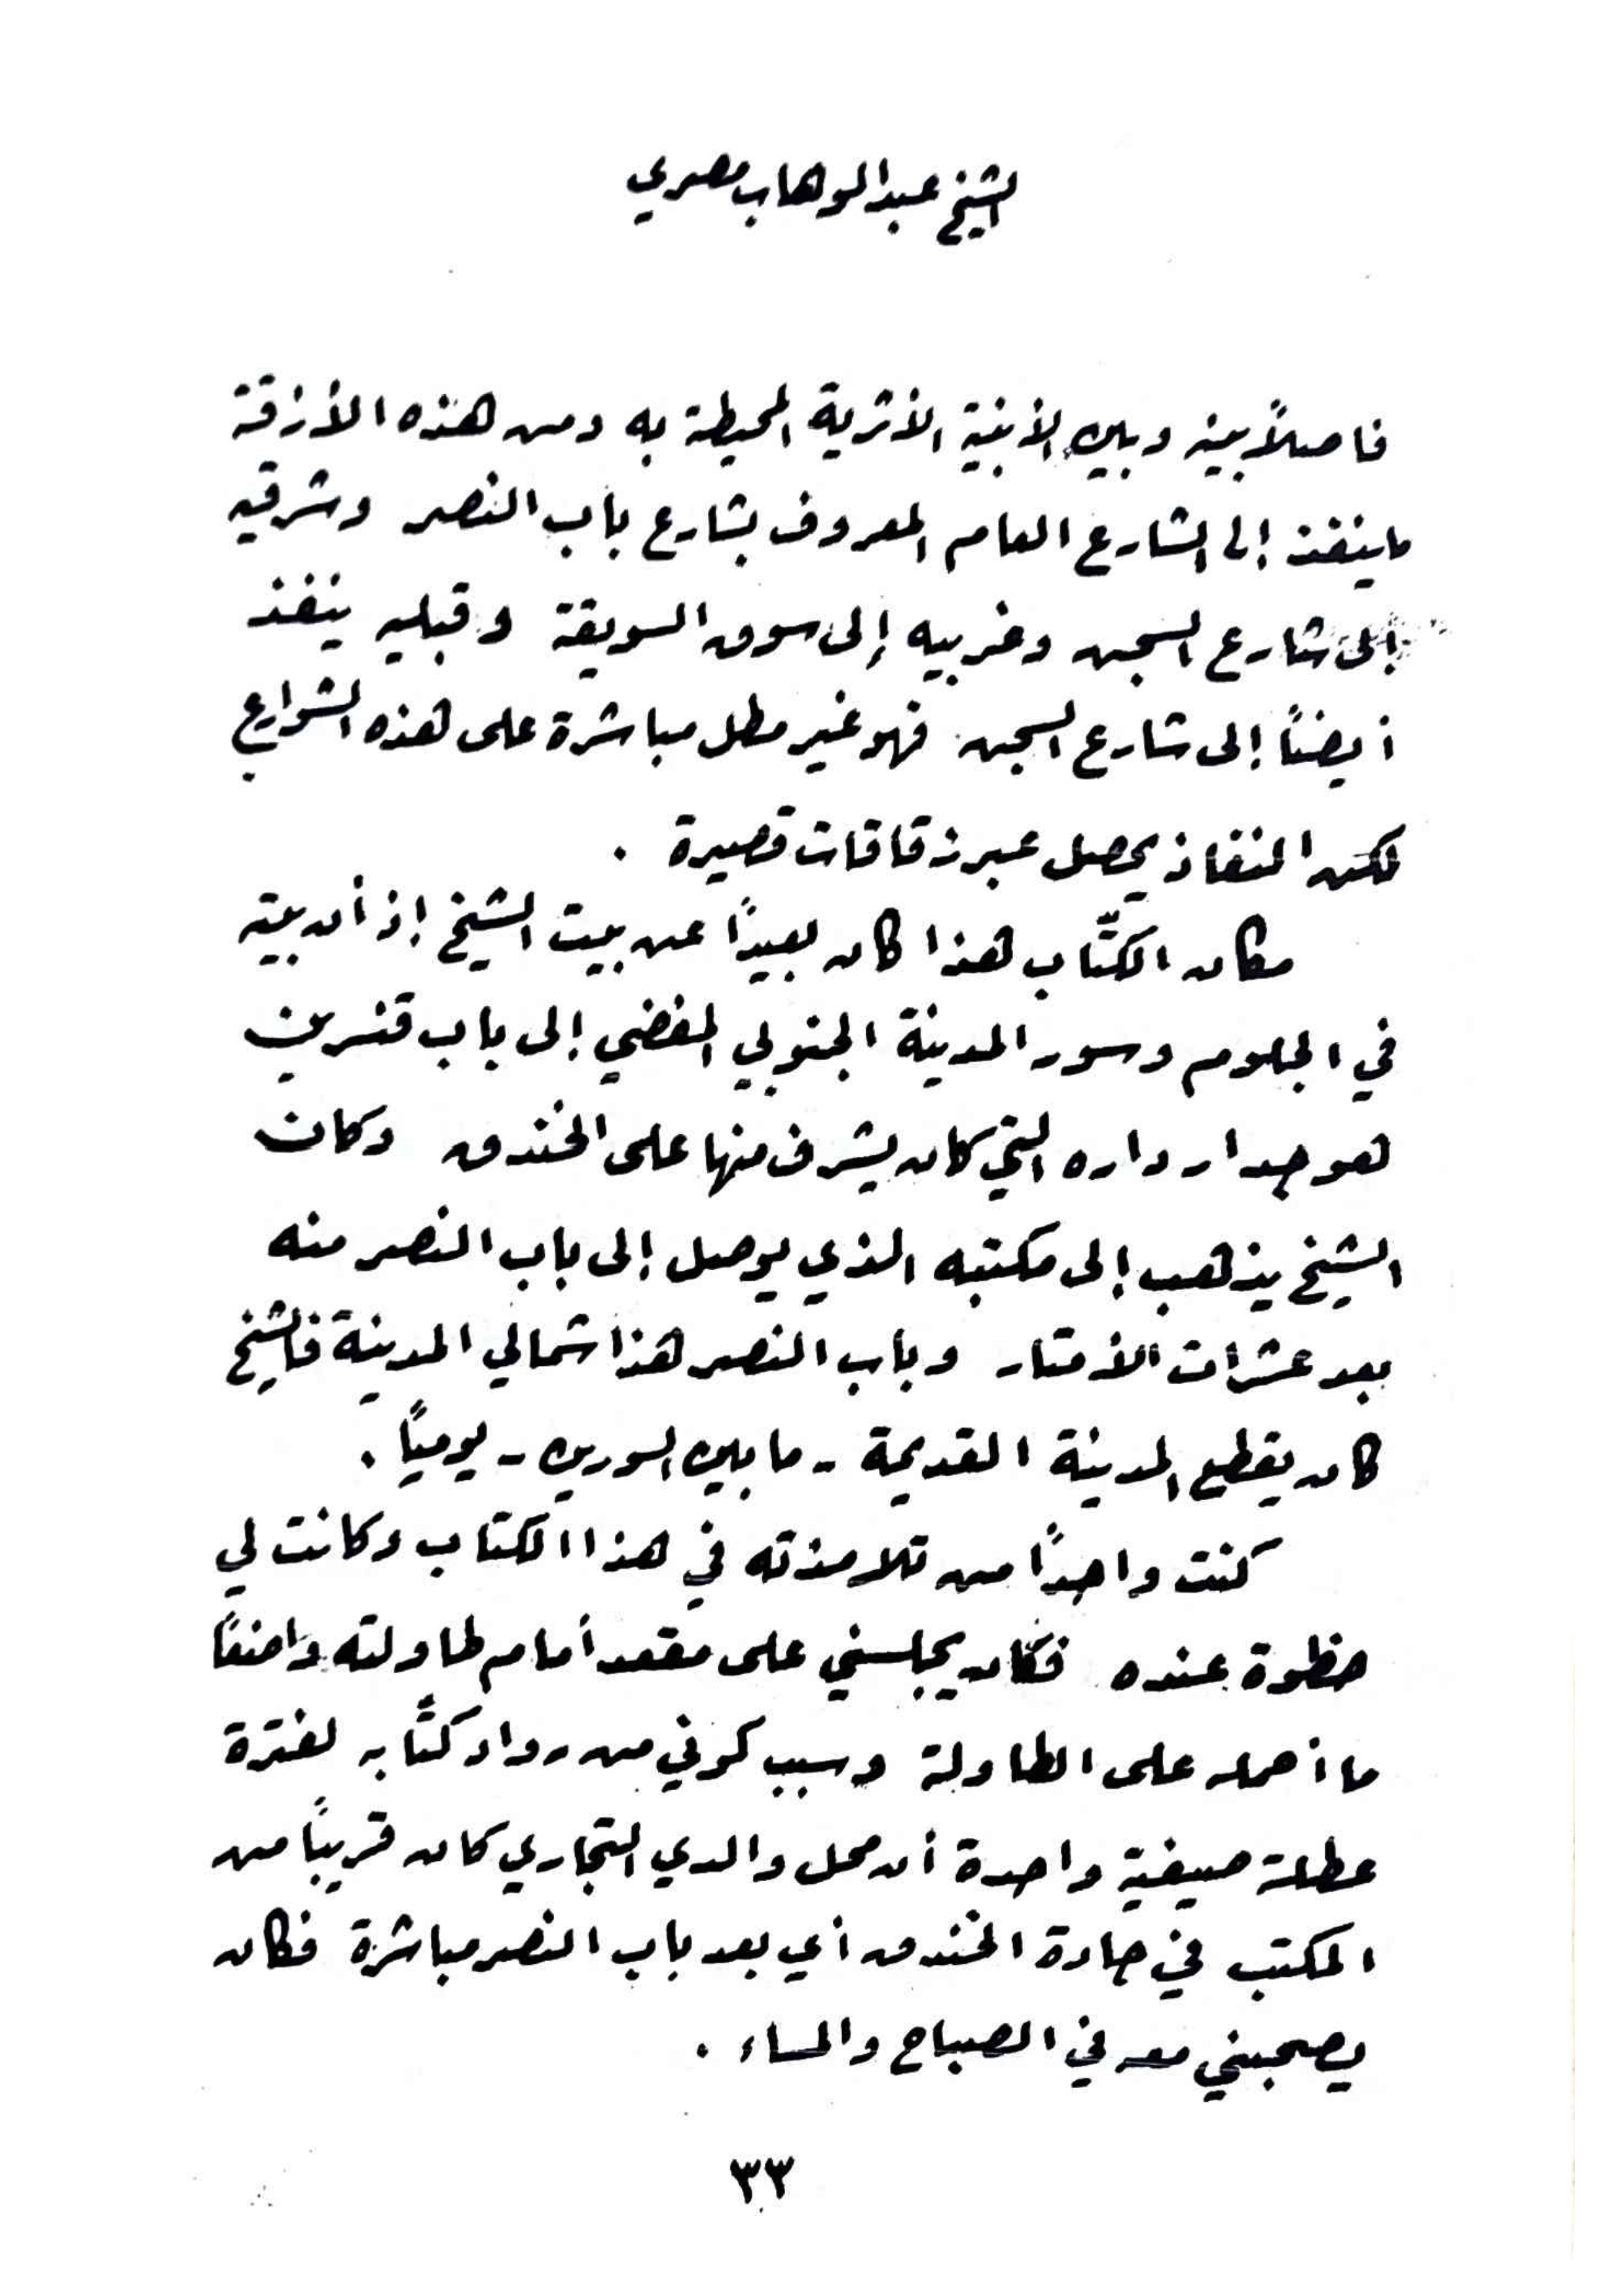 الشيخ عبد الوهاب مصري
فاصلاً بينه وبين الأبنية الأثرية المحيطة به ومن هذه الأزقة
ما ينفذ إلى الشارع العام المعروف بشارع باب النصر وشرقيه
إلى شارع السجن وغربيه إلى سوق السويقة وقبليه ينفذ
أيضاً إلى شارع السجن فهو غير مطل مباشرة على هذه الشوارع
لكن النفاذ يحصل عبر زقاقات قصيرة .
مكان الكتّاب هذا كان بعيداً عن بيت الشيخ إذ أن بيته
في الجلوم وسور المدينة الجنوبي المفضي إلى باب قنسرين
هو جدار داره التي كان يشرف منها على الخندق وكان
الشيخ يذهب إلى مكتبه الذي يوصل إلى باب النصر منه
بعد عشرات الأمتار وباب النصر هذا شمالي المدينة فالشيخ
كان يقطع المدينة القديمة - ما بين السورين - يومياً .
كنت واحداً من تلامذته في هذا الكتاب وكانت لي
حظوة عنده فكان يجلسني على مقعد أمام طاولته واضعاً
ما أحمله على الطاولة وسبب كوني من رواد كتَّابه لفترة
عطلة صيفية واحدة أن محل والدي التجاري كان قريباً من
المكتب في جادة الخندق أي بعد باب النصر مباشرة فكان
يصحبني معه في الصباح والمساء .
٣٣